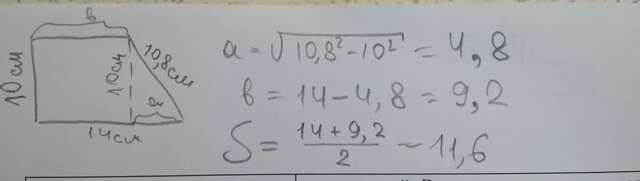 в
10см
10см
10,8см
a
14см
a = √10,8²-10² = 4,8
в = 14-4,8 = 9,2
S = 14+9,2/2 = 11,6